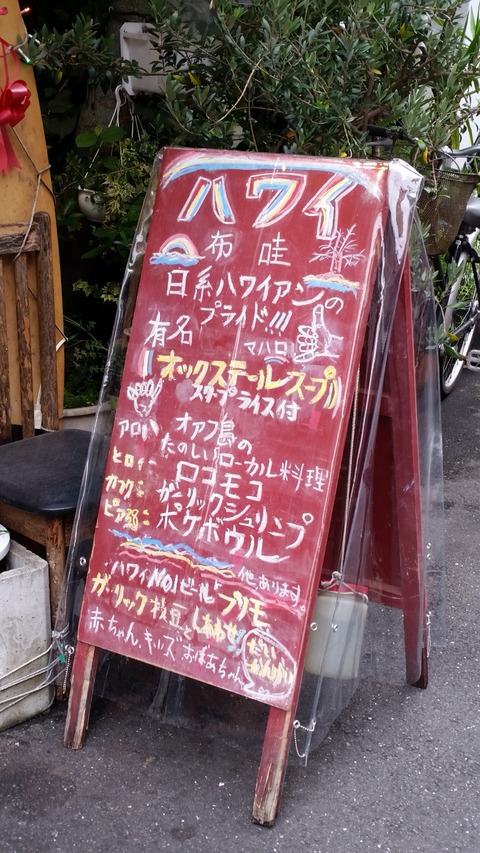 ハワイ
布哇
日系ハワイアンの
プライド!!!
有名
マハロ
オックステールスープ
スチームライス付
アロハ
オアフ島の
たのしいローカル料理
ロコモコ
ガーリックシュリンプ
ポケボウル
ハワイNO1ビール
他、あります
ガーリック枝豆と
しあわせ
プリモ
赤ちゃん、キッズ おばあちゃん
だい
かんげい